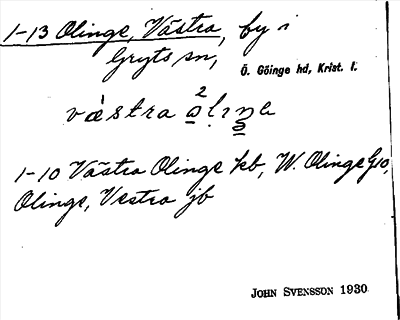 1-13 Olinge, Västra, by i
Gryts sn,
Ö. Göinge hd, Krist. l.
västra
1-10 Västra Olinge kb, W. Olinge G10,
Olinge, Vestra jb
JOHN SVENSSON 1930